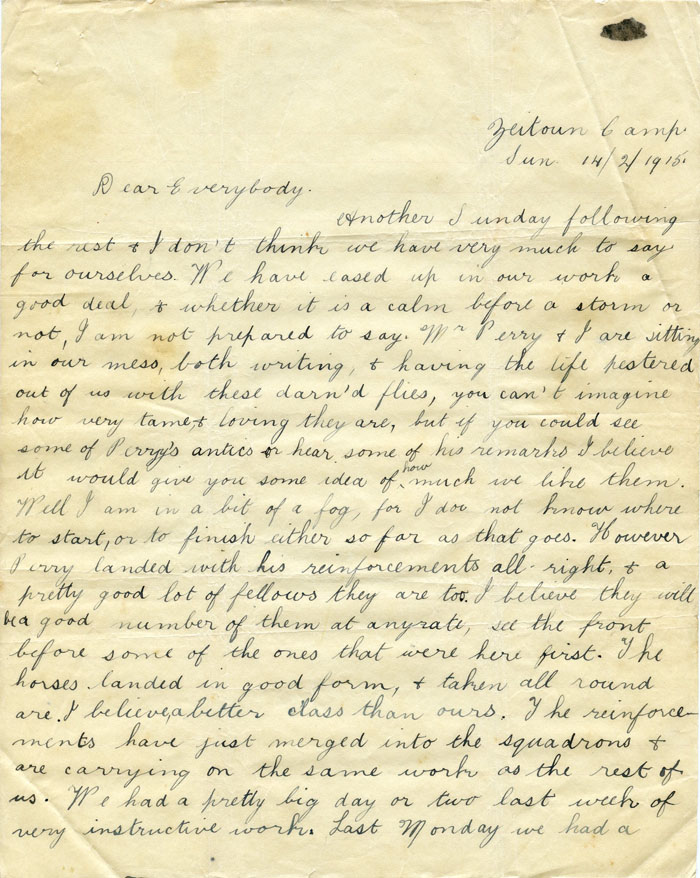 Zeitoun Camp.
Sun 14/2/1915.
Dear Everybody.
Another Sunday following
the rest & I don't think we have very much to say
for ourselves. We have eased up in our work a
good deal, & whether it is a calm before a storm or
not, I am not prepared to say. Mr Perry & I are sitting
in our mess, both writing, & having the life pestered
out of us with these darn'd flies, you can't imagine
how very tame & loving they are, but if you could see
some of Perry's antics or hear some of his remarks I believe
it would give you some idea of how much we like them.
Well I am in a bit of a fog, for I do not know where
to start, or to finish either so far as that goes. However
Perry landed with his reinforcements all right, & a
pretty good lot of fellows they are too. I believe they will
be a good number of them at anyrate, see the front
before some of the ones that were here first. The
horses landed in good form, & taken all round
are I believe, a better class than ours. The reinforce-
ments have just merged into the squadrons &
are carrying on the same work as the rest of
us. We had a pretty big day or two last week of
very instructive work. Last Monday we had a